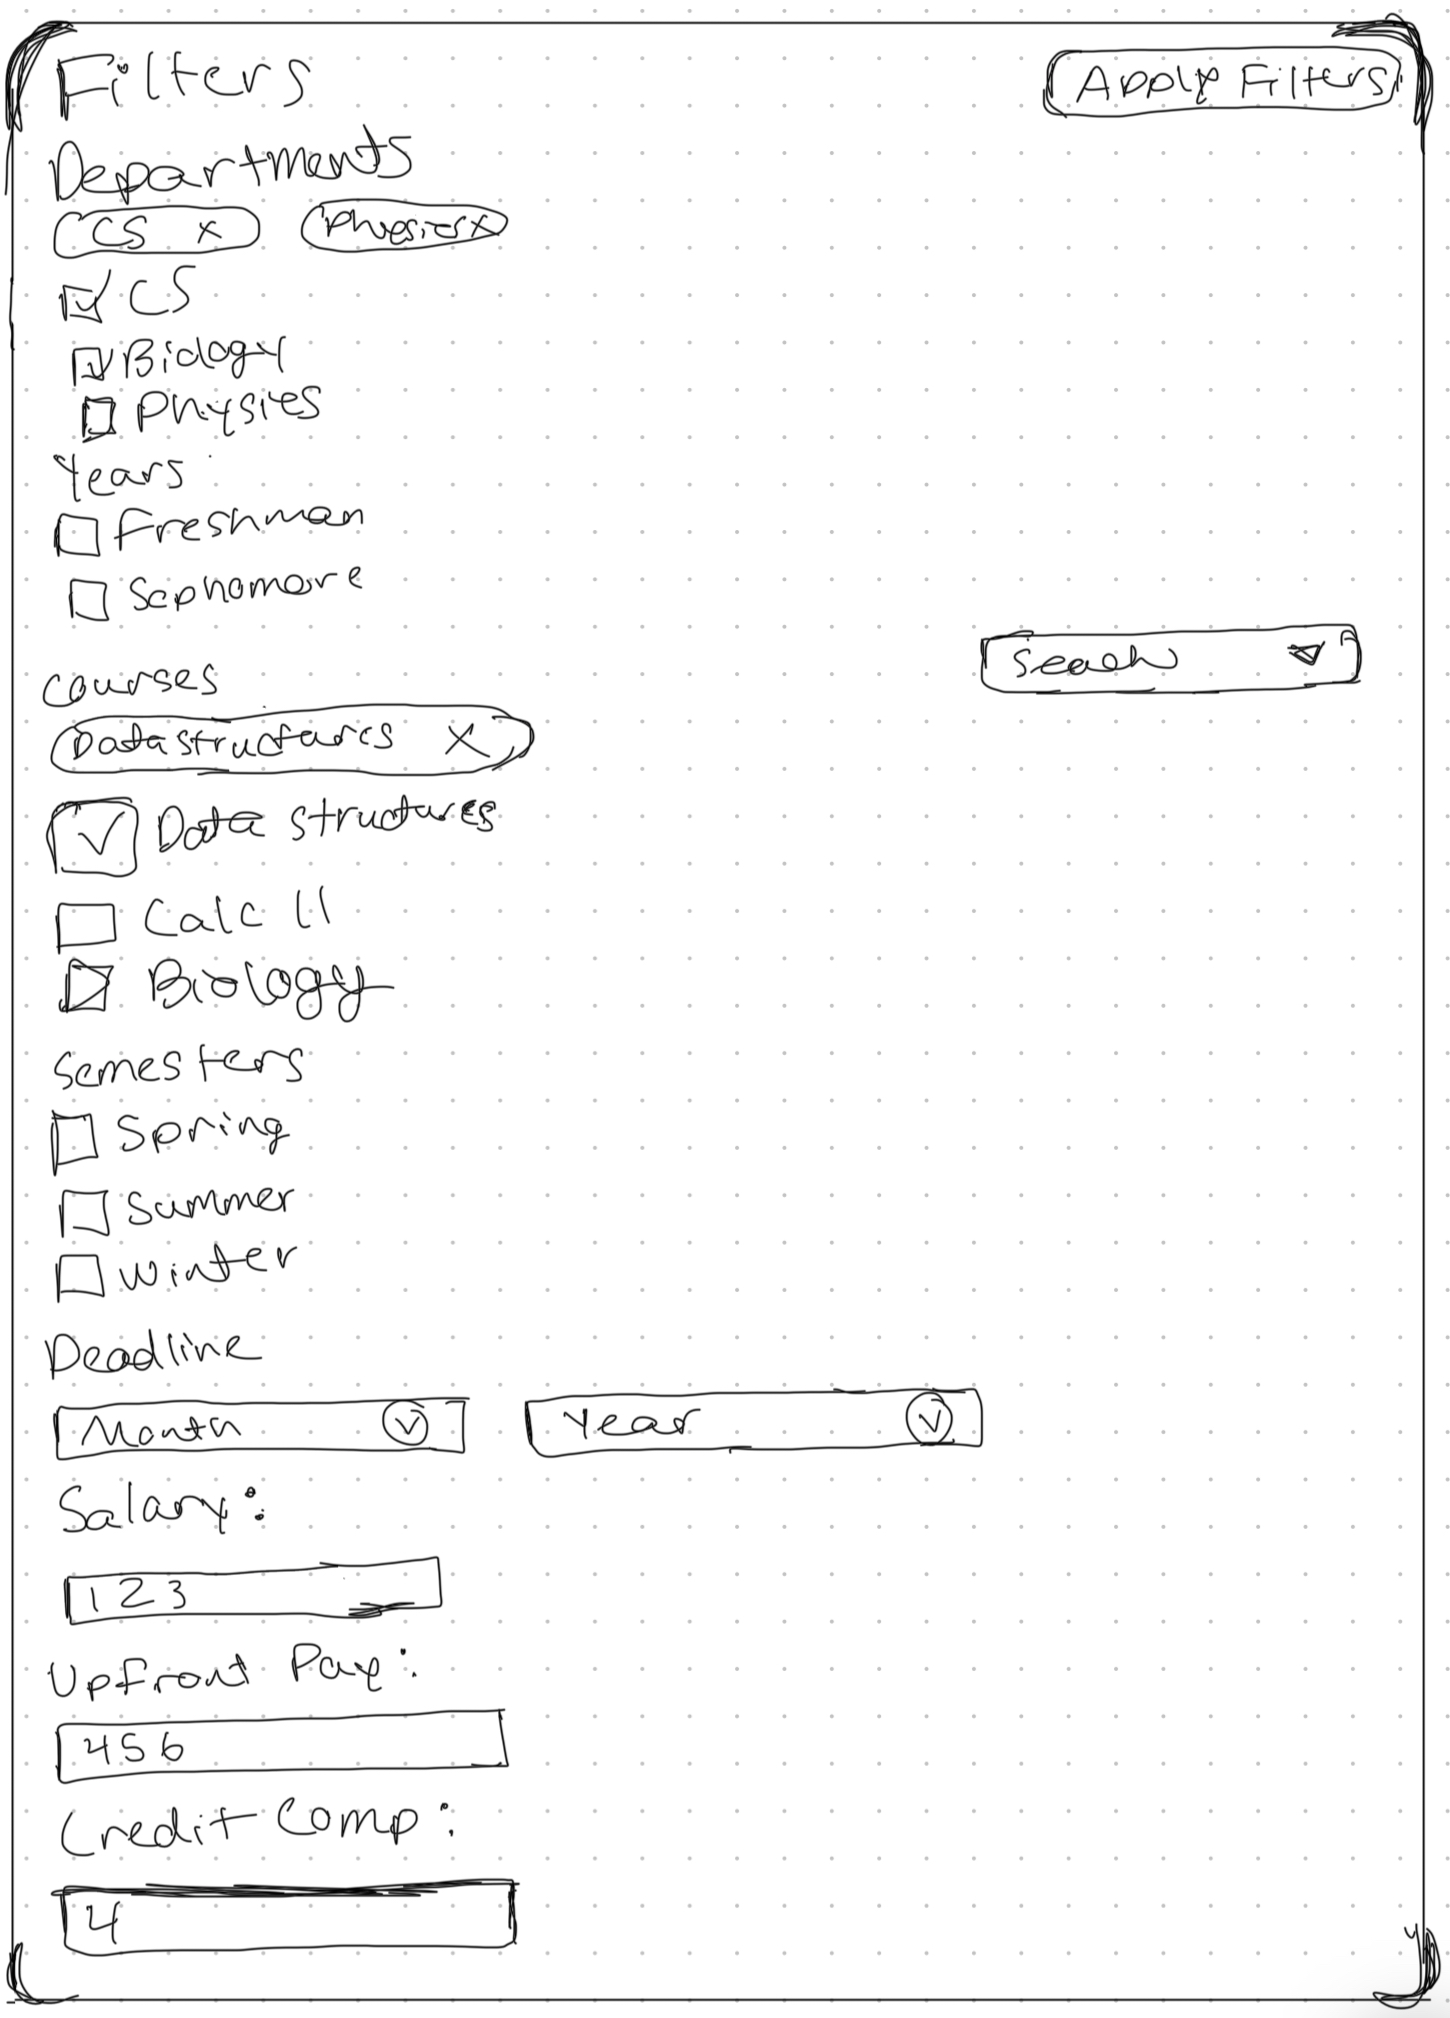 Filters
Apply Filters
Departments
CS x
Physics x
CS
Biology
Physics
Years
Freshman
Sophomore
Search
courses
Data structures X
Data structures
Calc II
Biology
Semesters
Spring
Summer
Winter
Deadline
Month
Year
Salary:
123
Upfront Pay:
456
Credit Comp:
4